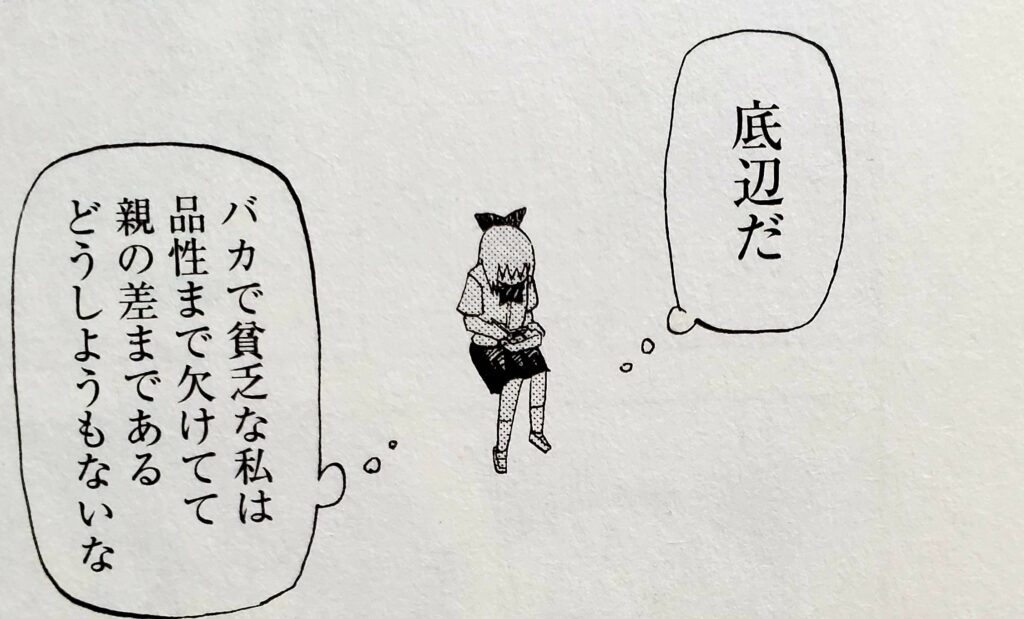 底辺だ
バカで貧乏な私は
品性まで欠けてて
親の差まである
どうしようもないな